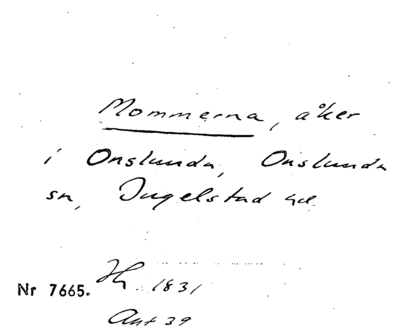 Mommerna, åker
i Onslunda, Onslunda
sn, Ingelstad hd.
Nr 7665. 1831
Ant 39